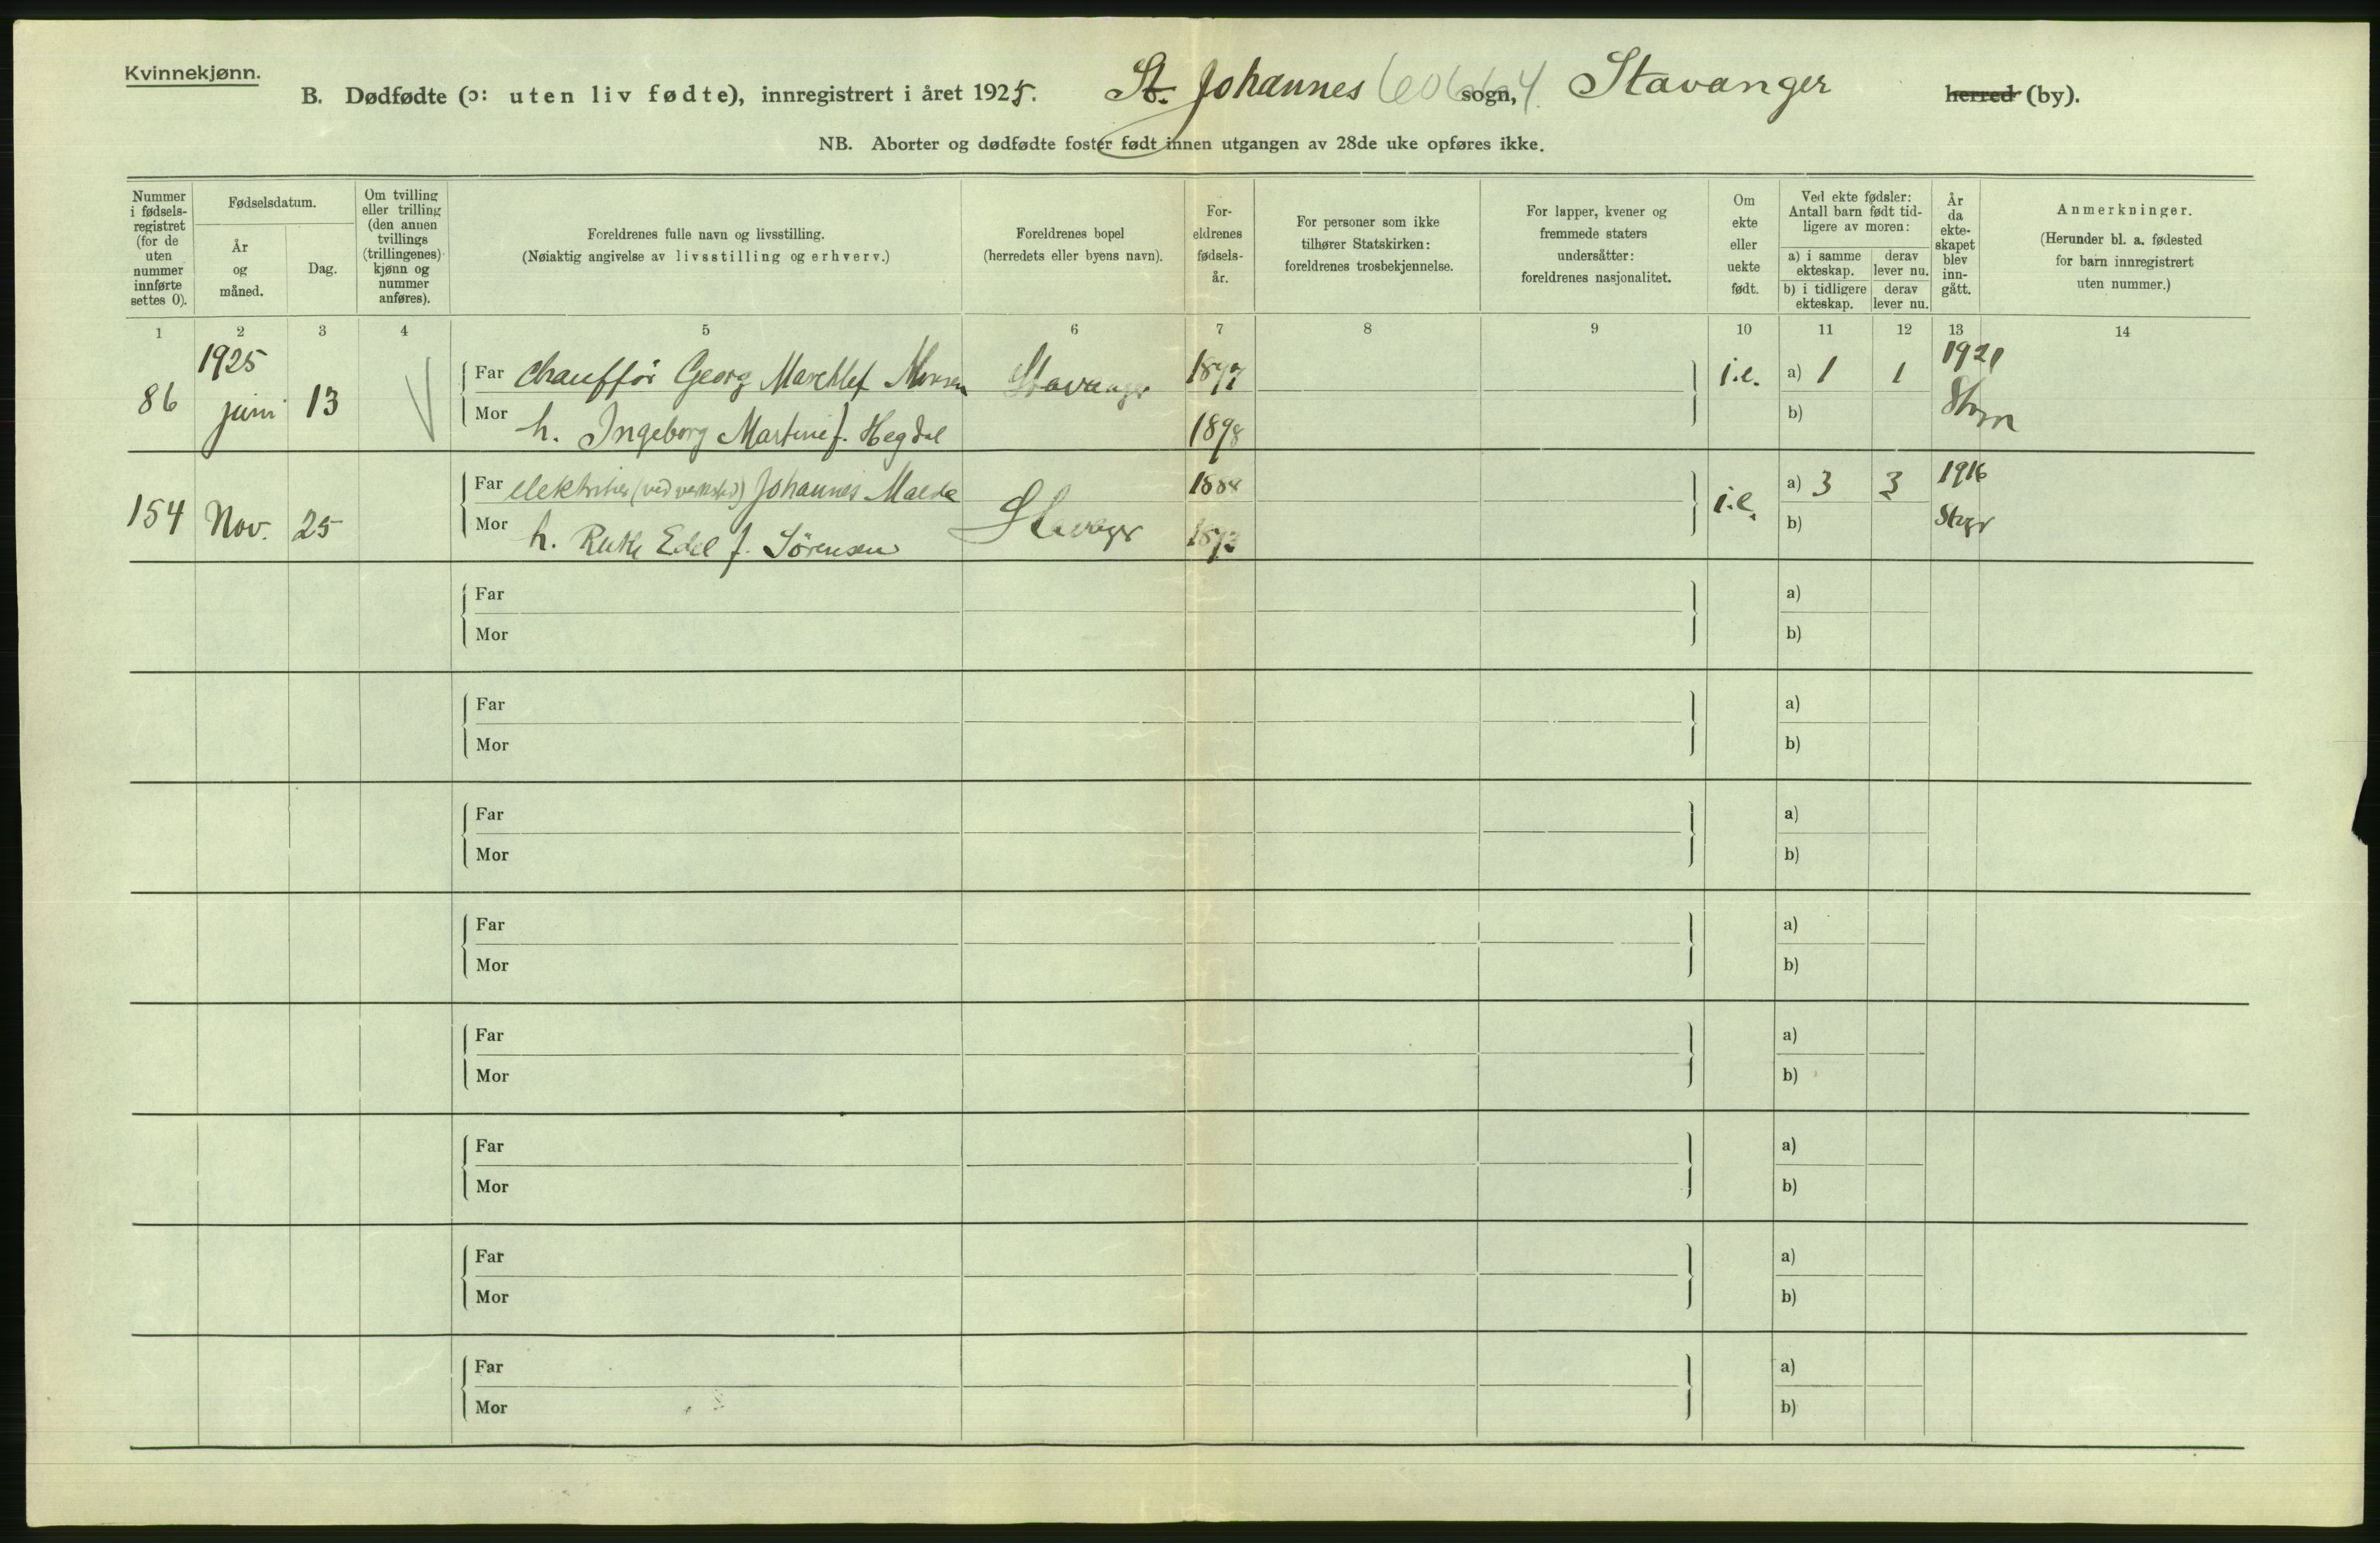 Kvinnekjønn.
B. Dødfødte (ɔ: uten liv fødte), innregistrert i året 1925. St. Johannes sogn, Stavanger herred (by).
NB. Aborter og dødfødte foster født innen utgangen av 28de uke opføres ikke.
Nummer i fødsels-registret (for de uten nummer innførte settes 0).
Fødselsdatum.
År og måned.
Dag.
Om tvilling eller trilling (den annen tvillings (trillingenes) kjønn og nummer anføres).
Foreldrenes fulle navn og livsstilling.
(Nøiaktig angivelse av livsstilling og erhverv.)
Foreldrenes bopel
(herredets eller byens navn).
For-eldrenes fødsels-år.
For personer som ikke tilhører Statskirken: foreldrenes trosbekjennelse.
For lapper, kvener og fremmede staters undersåtter: foreldrenes nasjonalitet.
Om ekte eller uekte født.
Ved ekte fødsler: Antall barn født tid-ligere av moren:
a) i samme ekteskap. derav lever nu.
b) i tidligere ekteskap. derav lever nu.
År da ekte-skapet blev inn-gått.
Anmerkninger.
(Herunder bl. a. fødested for barn innregistrert uten nummer.)
1 2 3 4 5 6 7 8 9 10 11 12 13 14
1925 1921
86 juni 13 Far Chauffør Georg Stavanger 1897 i.e. a) 1 1
Mor h. Ingeborg Martine f. Hegdal 1898 b)
Far elektriker (ved verksted) Johannes Malde 1888 a) 3 3 1916
154 Nov. 25 Mor h. Ruth Edel f. Sørensen Stavanger i.e. b) Stvgr
Far a)
Mor b)
Far a)
Mor b)
Far a)
Mor b)
Far a)
Mor b)
Far a)
Mor b)
Far a)
Mor b)
Far a)
Mor b)
Far a)
Mor b)